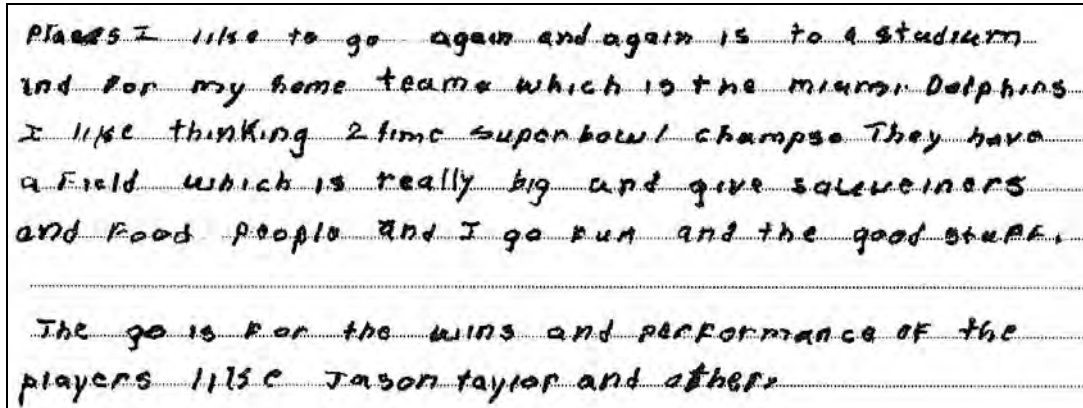 places I like to go again and again is to a studium
and for my home teams which is the miami Dolphins
I like thinking 2 time superbowl champs. They have
a Field which is really big and give
and Food people and I go Fun and the good stuFF.
The go is For the wins and perFormance oF the
players like Jason taylor and others